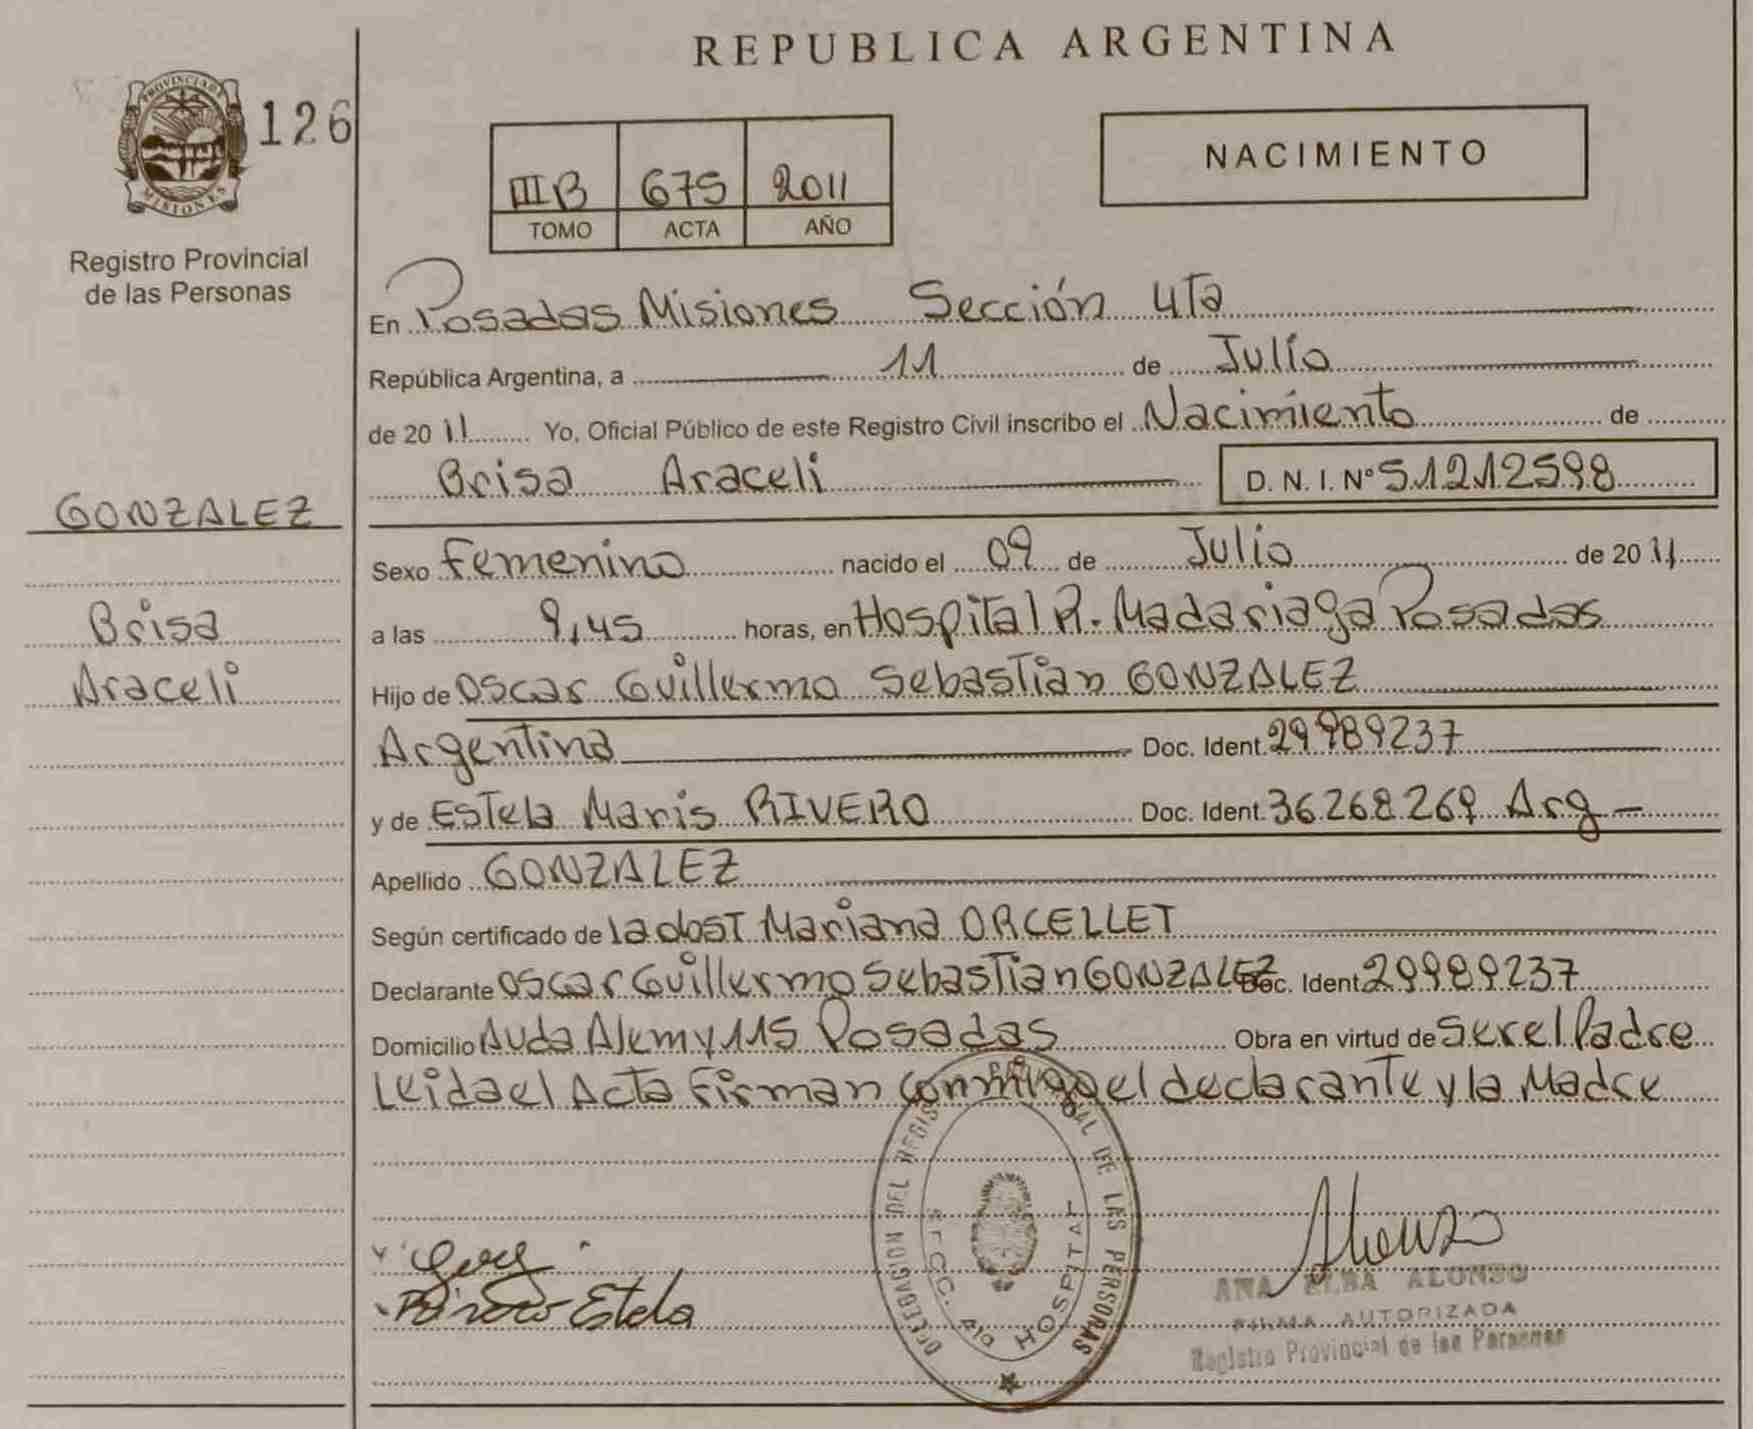 REPUBLICA ARGENTINA
PROVINCIA DE MISIONES
126
Registro Provincial
de las Personas
III B 675 2011
TOMO ACTA AÑO
NACIMIENTO
En Posadas Misiones Sección 4Ta
República Argentina, a 11 de Julio
de 2011 Yo, Oficial Público de este Registro Civil inscribo el Nacimiento de
Brisa Araceli D. N. I. Nº 51212598
GONZALEZ
Brisa
Araceli
Sexo Femenino nacido el 09 de Julio de 2011
a las 9,45 horas, en Hospital R. Madariaga Posadas
Hijo de Oscar Guillermo Sebastian GONZALEZ
Argentina Doc. Ident. 29989237
y de Estela Maris RIVERO Doc. Ident. 36268269 Arg -
Apellido GONZALEZ
Según certificado de la obst Mariana ORCELLET
Declarante Oscar Guillermo Sebastian GONZALEZ Doc. Ident 29989237
Domicilio Avda Alem y 115 Posadas Obra en virtud de Ser el Padre
Leida el Acta Firman conmigo el declarante y la Madre
DELEGACION DEL REGISTRO PROVINCIAL DE LAS PERSONAS
SECC. 4ta HOSPITAL
Rivero Estela
Alonso
ANA ELBA ALONSO
FIRMA AUTORIZADA
Registro Provincial de las Personas